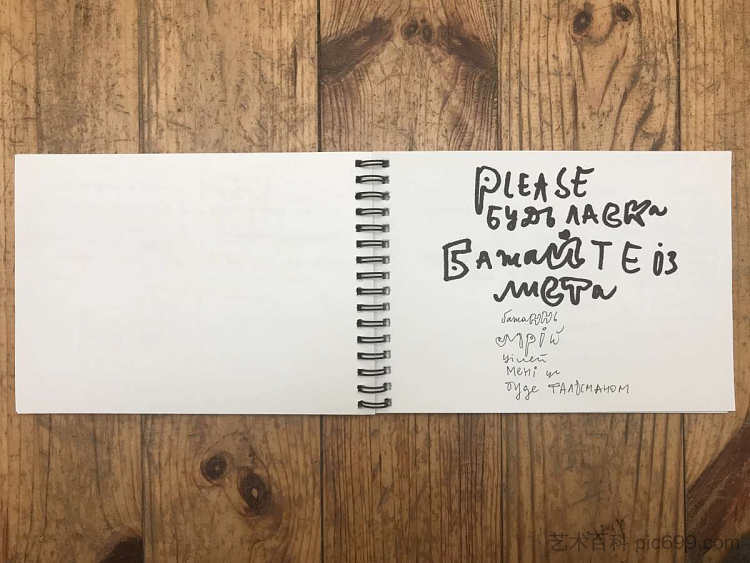 PLEASE
БУДЬ ЛАСКА
БАЖАЙТЕ ІЗ
ЛИСТА
бажань
мрій
цілей
мені це
буде ТАЛІСМАНОМ
艺术百科 pic699.com